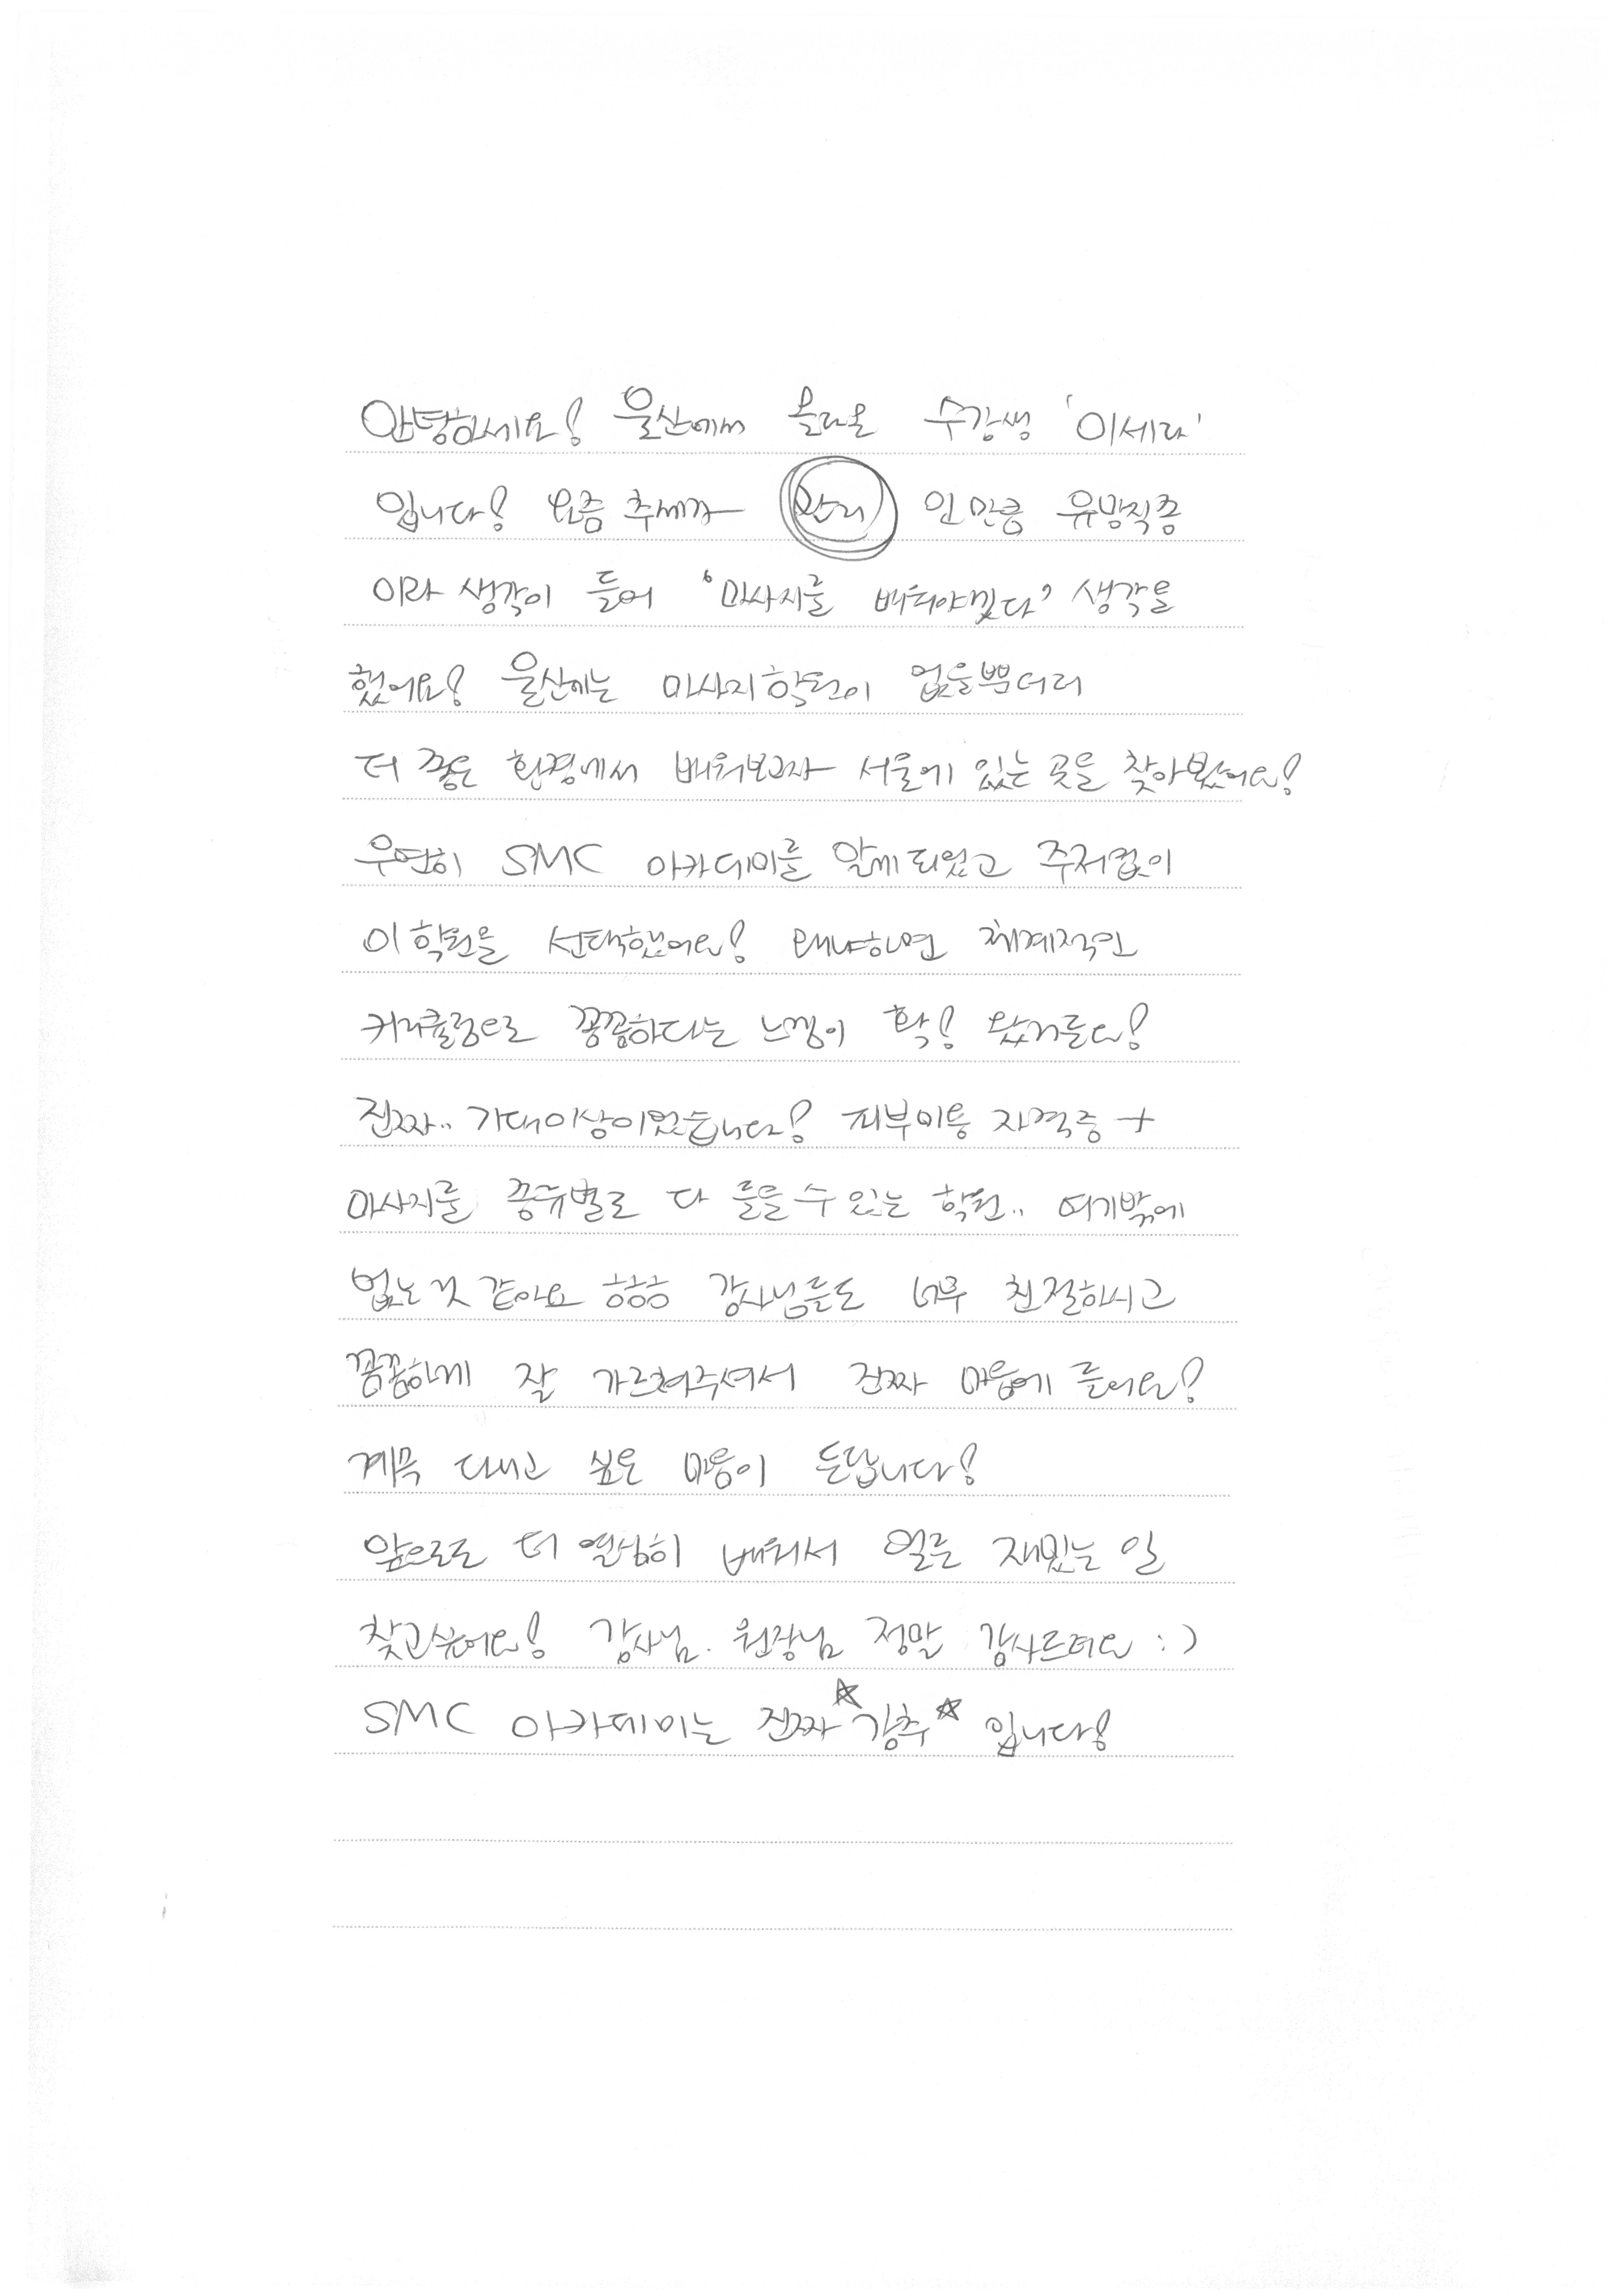 안녕하세요! 울산에서 올라온 수강생 '이세라'
입니다! 요즘 추세가 관리 인만큼 유망직종
이라 생각이 들어 '마사지를 배워야겠다' 생각을
했어요! 울산에는 마사지학원이 없을뿐더러
더 좋은 환경에서 배워보고자 서울에 있는 곳을 찾아봤어요!
우연히 SMC 아카데미를 알게되었고 주저없이
이 학원을 선택했어요! 왜냐하면 체계적인
커리큘럼으로 꼼꼼하다는 느낌이 확! 왔거든요!
진짜.. 기대이상이었습니다! 피부미용 자격증 +
마사지를 종류별로 다 들을 수 있는 학원.. 여기밖에
없는 것 같아요 ㅎㅎㅎ 강사님들도 너무 친절하시고
꼼꼼하게 잘 가르쳐주셔서 진짜 마음에 들어요!
계속 다니고 싶은 마음이 듭니다!
앞으로도 더 열심히 배워서 얼른 재밌는 일
찾고싶어요! 강사님. 원장님 정말 감사드려요 :)
SMC 아카데미는 진짜 ☆강추☆ 입니다!